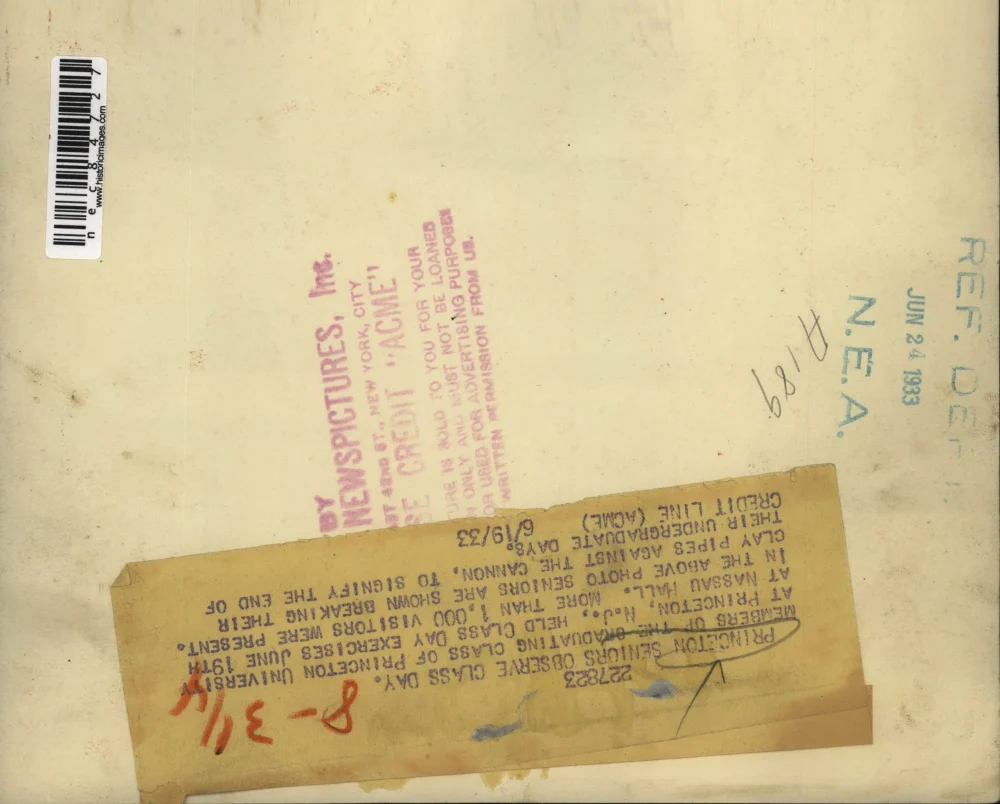 227823
PRINCETON SENIORS OBSERVE CLASS DAY.
MEMBERS OF THE GRADUATING CLASS OF PRINCETON UNIVERSITY
AT PRINCETON, N.J., HELD CLASS DAY EXERCISES JUNE 19TH
AT NASSAU HALL. MORE THAN 1,000 VISITORS WERE PRESENT.
IN THE ABOVE PHOTO SENIORS ARE SHOWN BREAKING THEIR
CLAY PIPES AGAINST THE CANNON, TO SIGNIFY THE END OF
THEIR UNDERGRADUATE DAYS.
CREDIT LINE (ACME) 6/19/33
BY
NEWSPICTURES, Inc.
42ND ST., NEW YORK, CITY
CREDIT "ACME"
IS SOLD TO YOU FOR YOUR
ONLY AND MUST NOT BE LOANED
OR USED FOR ADVERTISING PURPOSES
WRITTEN PERMISSION FROM US.
REF. DEPT.
JUN 24 1933
N.E.A.
A189
nec84727
www.historicimages.com